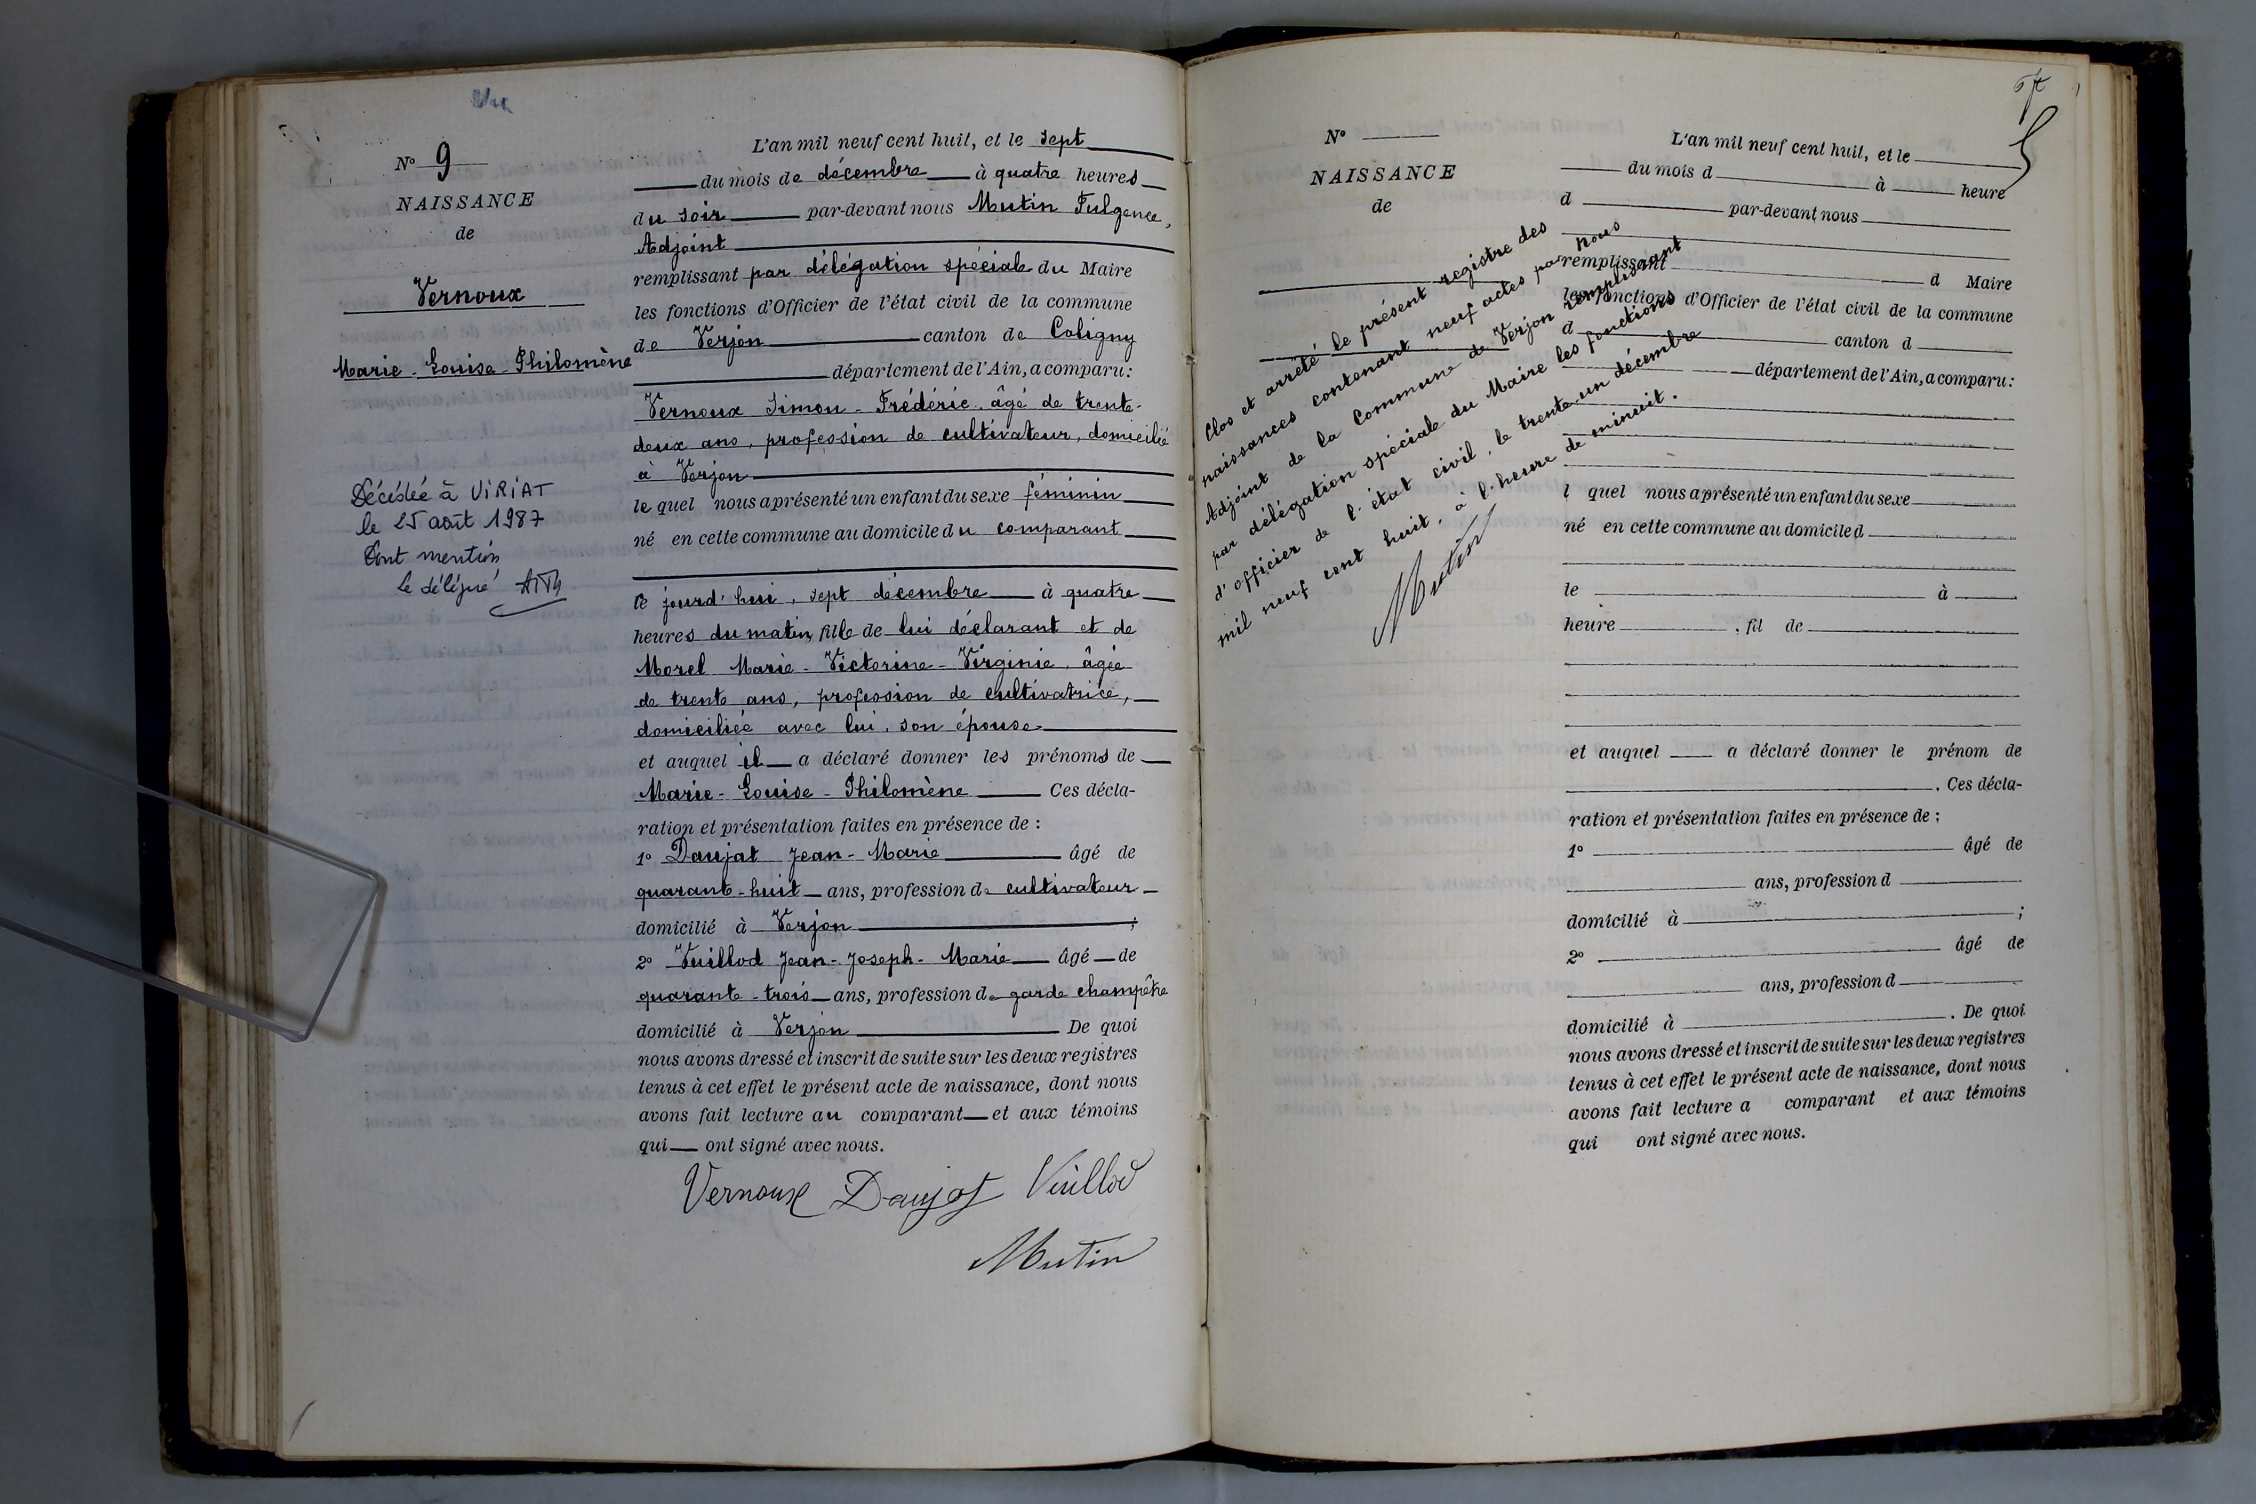 Vu
N° 9
NAISSANCE
de
Vernoux
Marie-Louise-Philomène
Décédée à VIRIAT
le 25 août 1987
Dont mention
le délégué
L'an mil neuf cent huit, et le sept
du mois de décembre à quatre heures
du soir par-devant nous Mutin Fulgence,
Adjoint
remplissant par délégation spéciale du Maire
les fonctions d'Officier de l'état civil de la commune
de Verjon canton de Coligny
département de l'Ain, a comparu :
Vernoux Simon-Frédéric, âgé de trente-
deux ans, profession de cultivateur, domicilié
à Verjon
le quel nous a présenté un enfant du sexe féminin
né en cette commune au domicile du comparant
ce jourd'hui, sept décembre à quatre
heures du matin, fille de lui déclarant et de
Morel Marie-Victorine-Virginie, âgée
de trente ans, profession de cultivatrice,
domiciliée avec lui, son épouse
et auquel il a déclaré donner les prénoms de
Marie-Louise-Philomène Ces décla-
ration et présentation faites en présence de :
1° Daujat Jean-Marie âgé de
quarante-huit ans, profession de cultivateur
domicilié à Verjon ;
2° Vuillod Jean-Joseph-Marie âgé de
quarante-trois ans, profession de garde champêtre
domicilié à Verjon De quoi
nous avons dressé et inscrit de suite sur les deux registres
tenus à cet effet le présent acte de naissance, dont nous
avons fait lecture au comparant et aux témoins
qui ont signé avec nous.
Vernoux Daujat Vuillod
Mutin
N°
NAISSANCE
de
Clos et arrêté le présent registre des
naissances contenant neuf actes par nous
Adjoint de la Commune de Verjon remplissant
par délégation spéciale du Maire les fonctions
d'officier de l'état civil, le trente-un décembre
mil neuf cent huit, à l'heure de minuit.
Mutin
L'an mil neuf cent huit, et le
du mois d à heure
d par-devant nous
remplissant d Maire
les fonctions d'Officier de l'état civil de la commune
d canton d
département de l'Ain, a comparu :
l quel nous a présenté un enfant du sexe
né en cette commune au domicile d
le à
heure , fil de
et auquel a déclaré donner le prénom de
. Ces décla-
ration et présentation faites en présence de :
1° âgé de
ans, profession d
domicilié à ;
2° âgé de
ans, profession d
domicilié à . De quoi
nous avons dressé et inscrit de suite sur les deux registres
tenus à cet effet le présent acte de naissance, dont nous
avons fait lecture a comparant et aux témoins
qui ont signé avec nous.